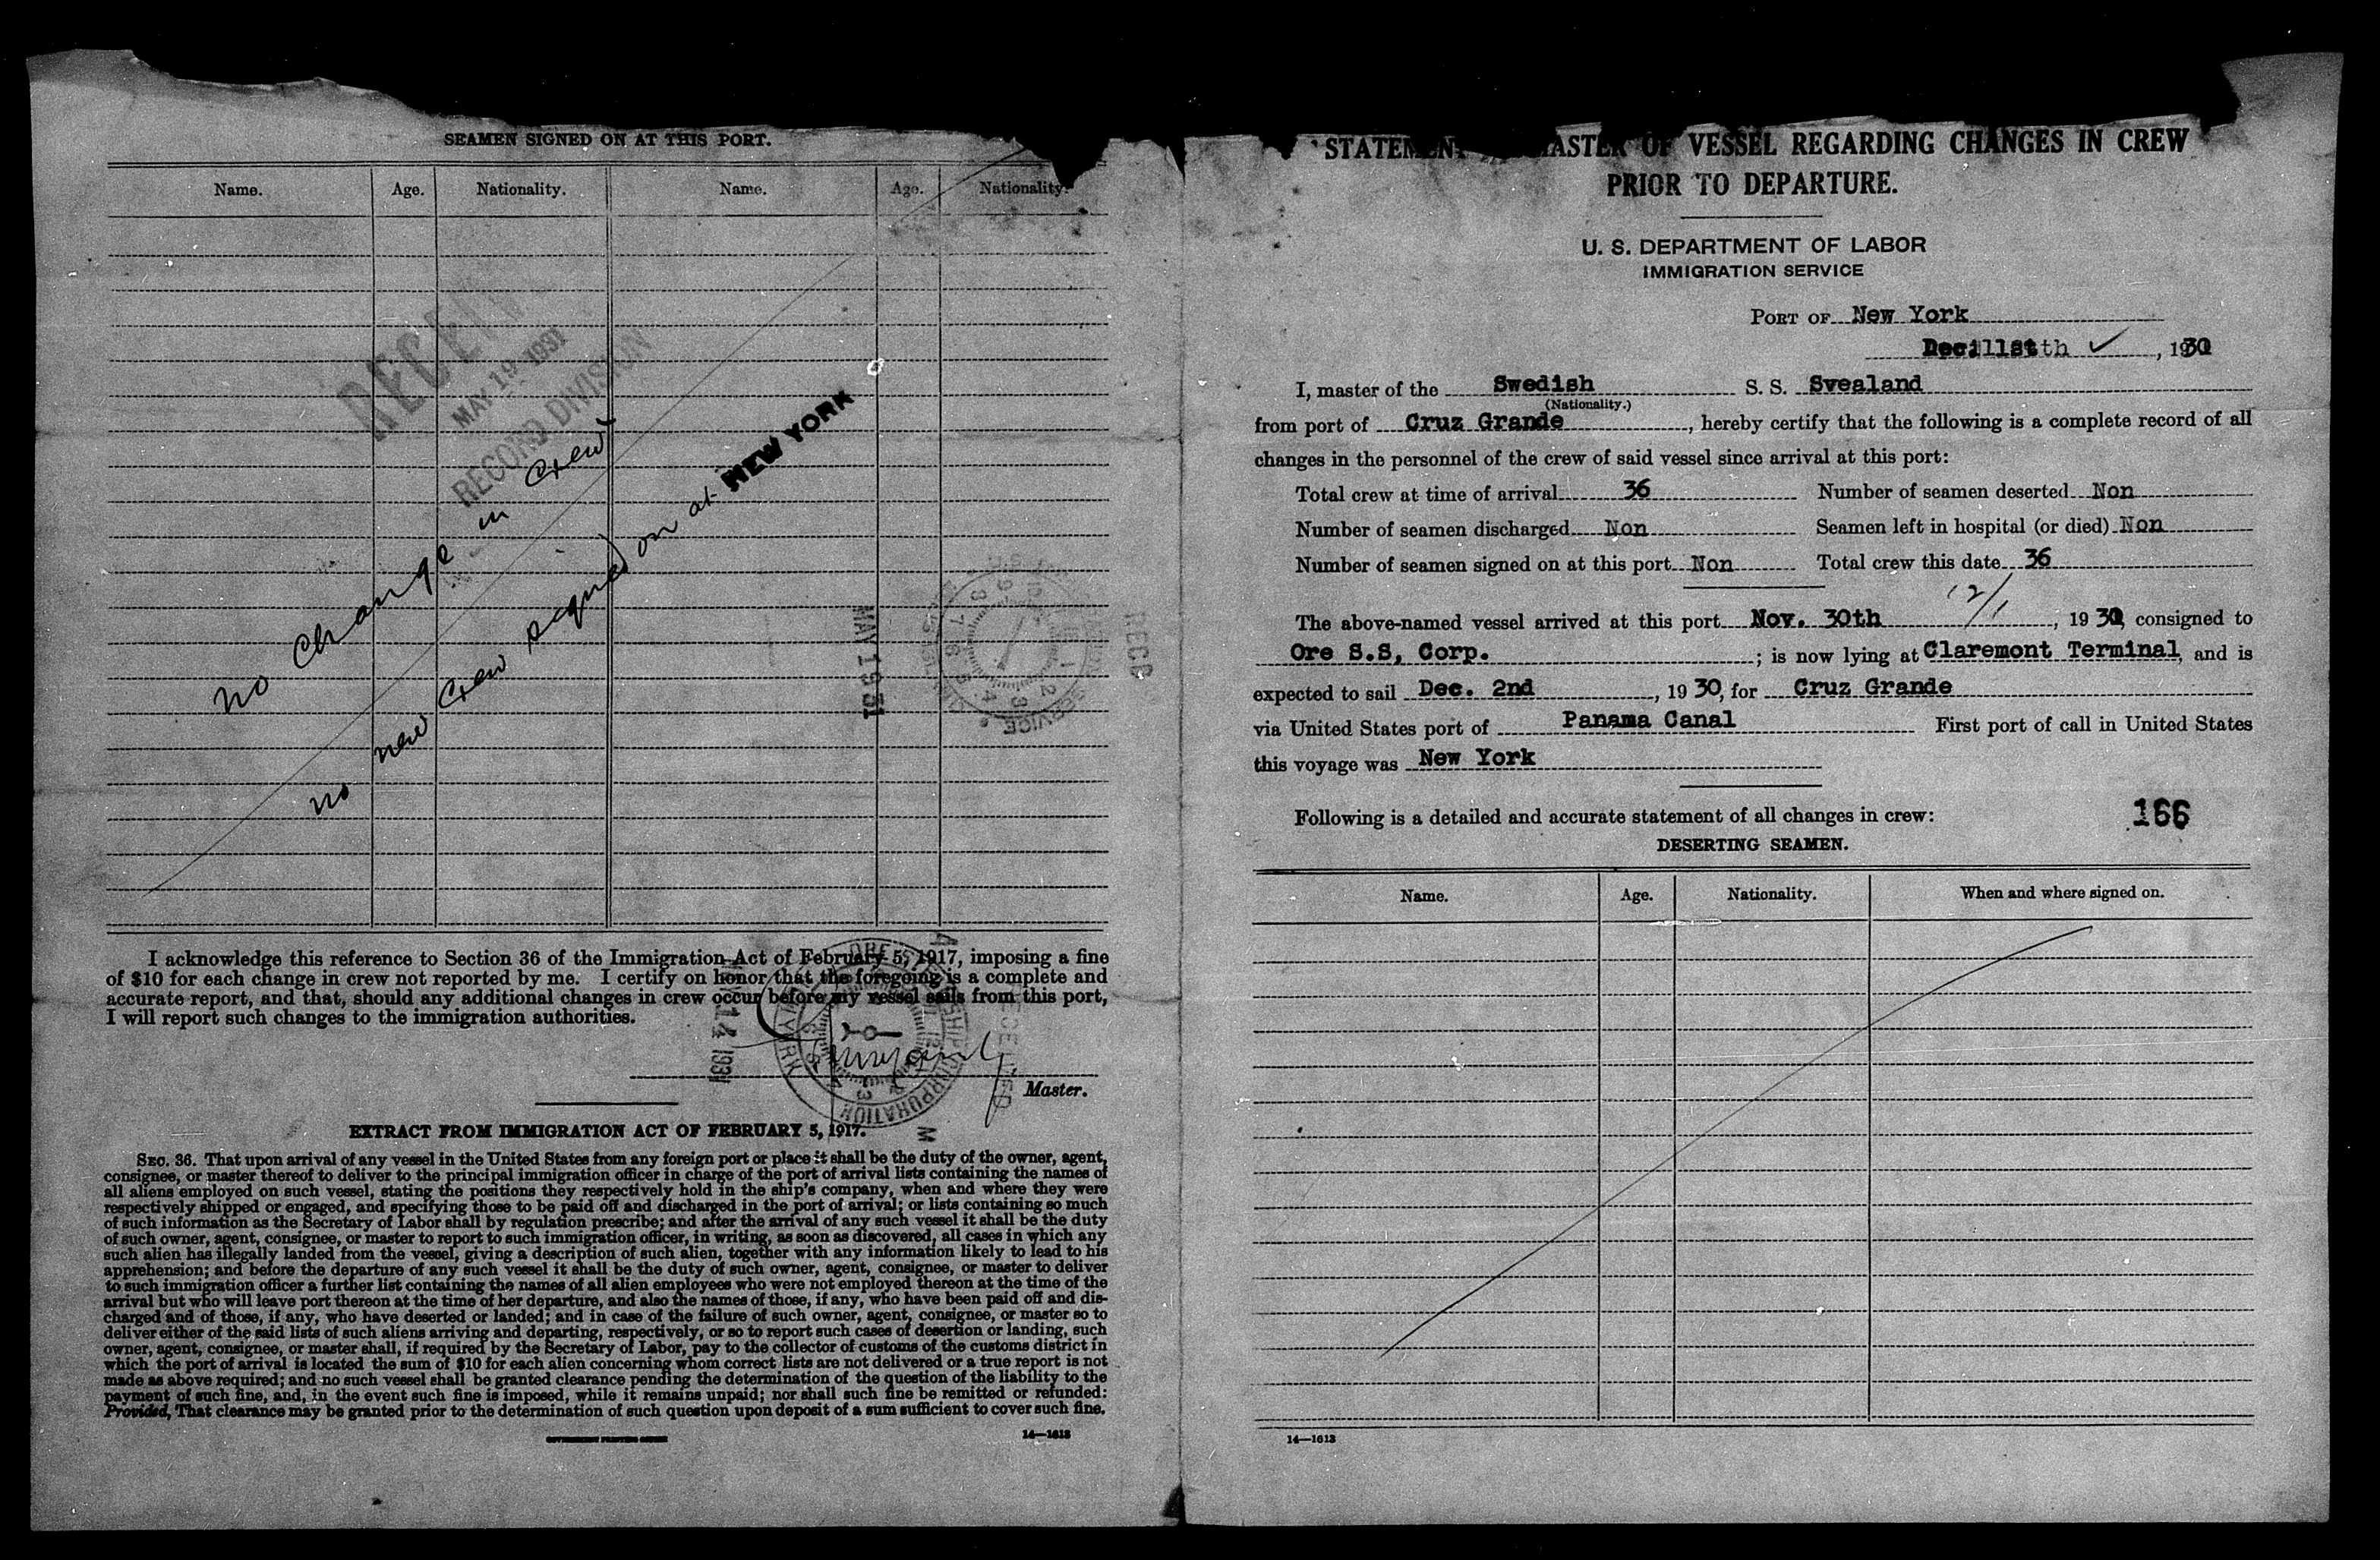 SEAMEN SIGNED ON AT THIS PORT.
Name. Age. Nationality. Name. Age. Nationality.
MAY 19 1931
RECORD DIVISION
no change in crew
no new crew signed on at NEW YORK
MAY 19 31
RECD
I acknowledge this reference to Section 36 of the Immigration Act of February 5, 1917, imposing a fine
of $10 for each change in crew not reported by me. I certify on honor that the foregoing is a complete and
accurate report, and that, should any additional changes in crew occur before my vessel sails from this port,
I will report such changes to the immigration authorities.
14 1931
Master.
EXTRACT FROM IMMIGRATION ACT OF FEBRUARY 5, 1917.
SEC. 36. That upon arrival of any vessel in the United States from any foreign port or place it shall be the duty of the owner, agent,
consignee, or master thereof to deliver to the principal immigration officer in charge of the port of arrival lists containing the names of
all aliens employed on such vessel, stating the positions they respectively hold in the ship's company, when and where they were
respectively shipped or engaged, and specifying those to be paid off and discharged in the port of arrival; or lists containing so much
of such information as the Secretary of Labor shall by regulation prescribe; and after the arrival of any such vessel it shall be the duty
of such owner, agent, consignee, or master to report to such immigration officer, in writing, as soon as discovered, all cases in which any
such alien has illegally landed from the vessel, giving a description of such alien, together with any information likely to lead to his
apprehension; and before the departure of any such vessel it shall be the duty of such owner, agent, consignee, or master to deliver
to such immigration officer a further list containing the names of all alien employees who were not employed thereon at the time of the
arrival but who will leave port thereon at the time of her departure, and also the names of those, if any, who have been paid off and dis-
charged and of those, if any, who have deserted or landed; and in case of the failure of such owner, agent, consignee, or master so to
deliver either of the said lists of such aliens arriving and departing, respectively, or so to report such cases of desertion or landing, such
owner, agent, consignee, or master shall, if required by the Secretary of Labor, pay to the collector of customs of the customs district in
which the port of arrival is located the sum of $10 for each alien concerning whom correct lists are not delivered or a true report is not
made as above required; and no such vessel shall be granted clearance pending the determination of the question of the liability to the
payment of such fine, and, in the event such fine is imposed, while it remains unpaid; nor shall such fine be remitted or refunded:
Provided, That clearance may be granted prior to the determination of such question upon deposit of a sum sufficient to cover such fine.
GOVERNMENT PRINTING OFFICE 14—1613
STATEMENT MASTER OF VESSEL REGARDING CHANGES IN CREW
PRIOR TO DEPARTURE.
U. S. DEPARTMENT OF LABOR
IMMIGRATION SERVICE
PORT OF New York
, 1930
I, master of the Swedish S. S. Svealand
(Nationality.)
from port of Cruz Grande, hereby certify that the following is a complete record of all
changes in the personnel of the crew of said vessel since arrival at this port:
Total crew at time of arrival 36 Number of seamen deserted Non
Number of seamen discharged Non Seamen left in hospital (or died) Non
Number of seamen signed on at this port Non Total crew this date 36
12/1
The above-named vessel arrived at this port Nov. 30th, 1930, consigned to
Ore S.S, Corp. ; is now lying at Claremont Terminal, and is
expected to sail Dec. 2nd, 1930, for Cruz Grande
via United States port of Panama Canal First port of call in United States
this voyage was New York
Following is a detailed and accurate statement of all changes in crew: 166
DESERTING SEAMEN.
Name. Age. Nationality. When and where signed on.
14—1613